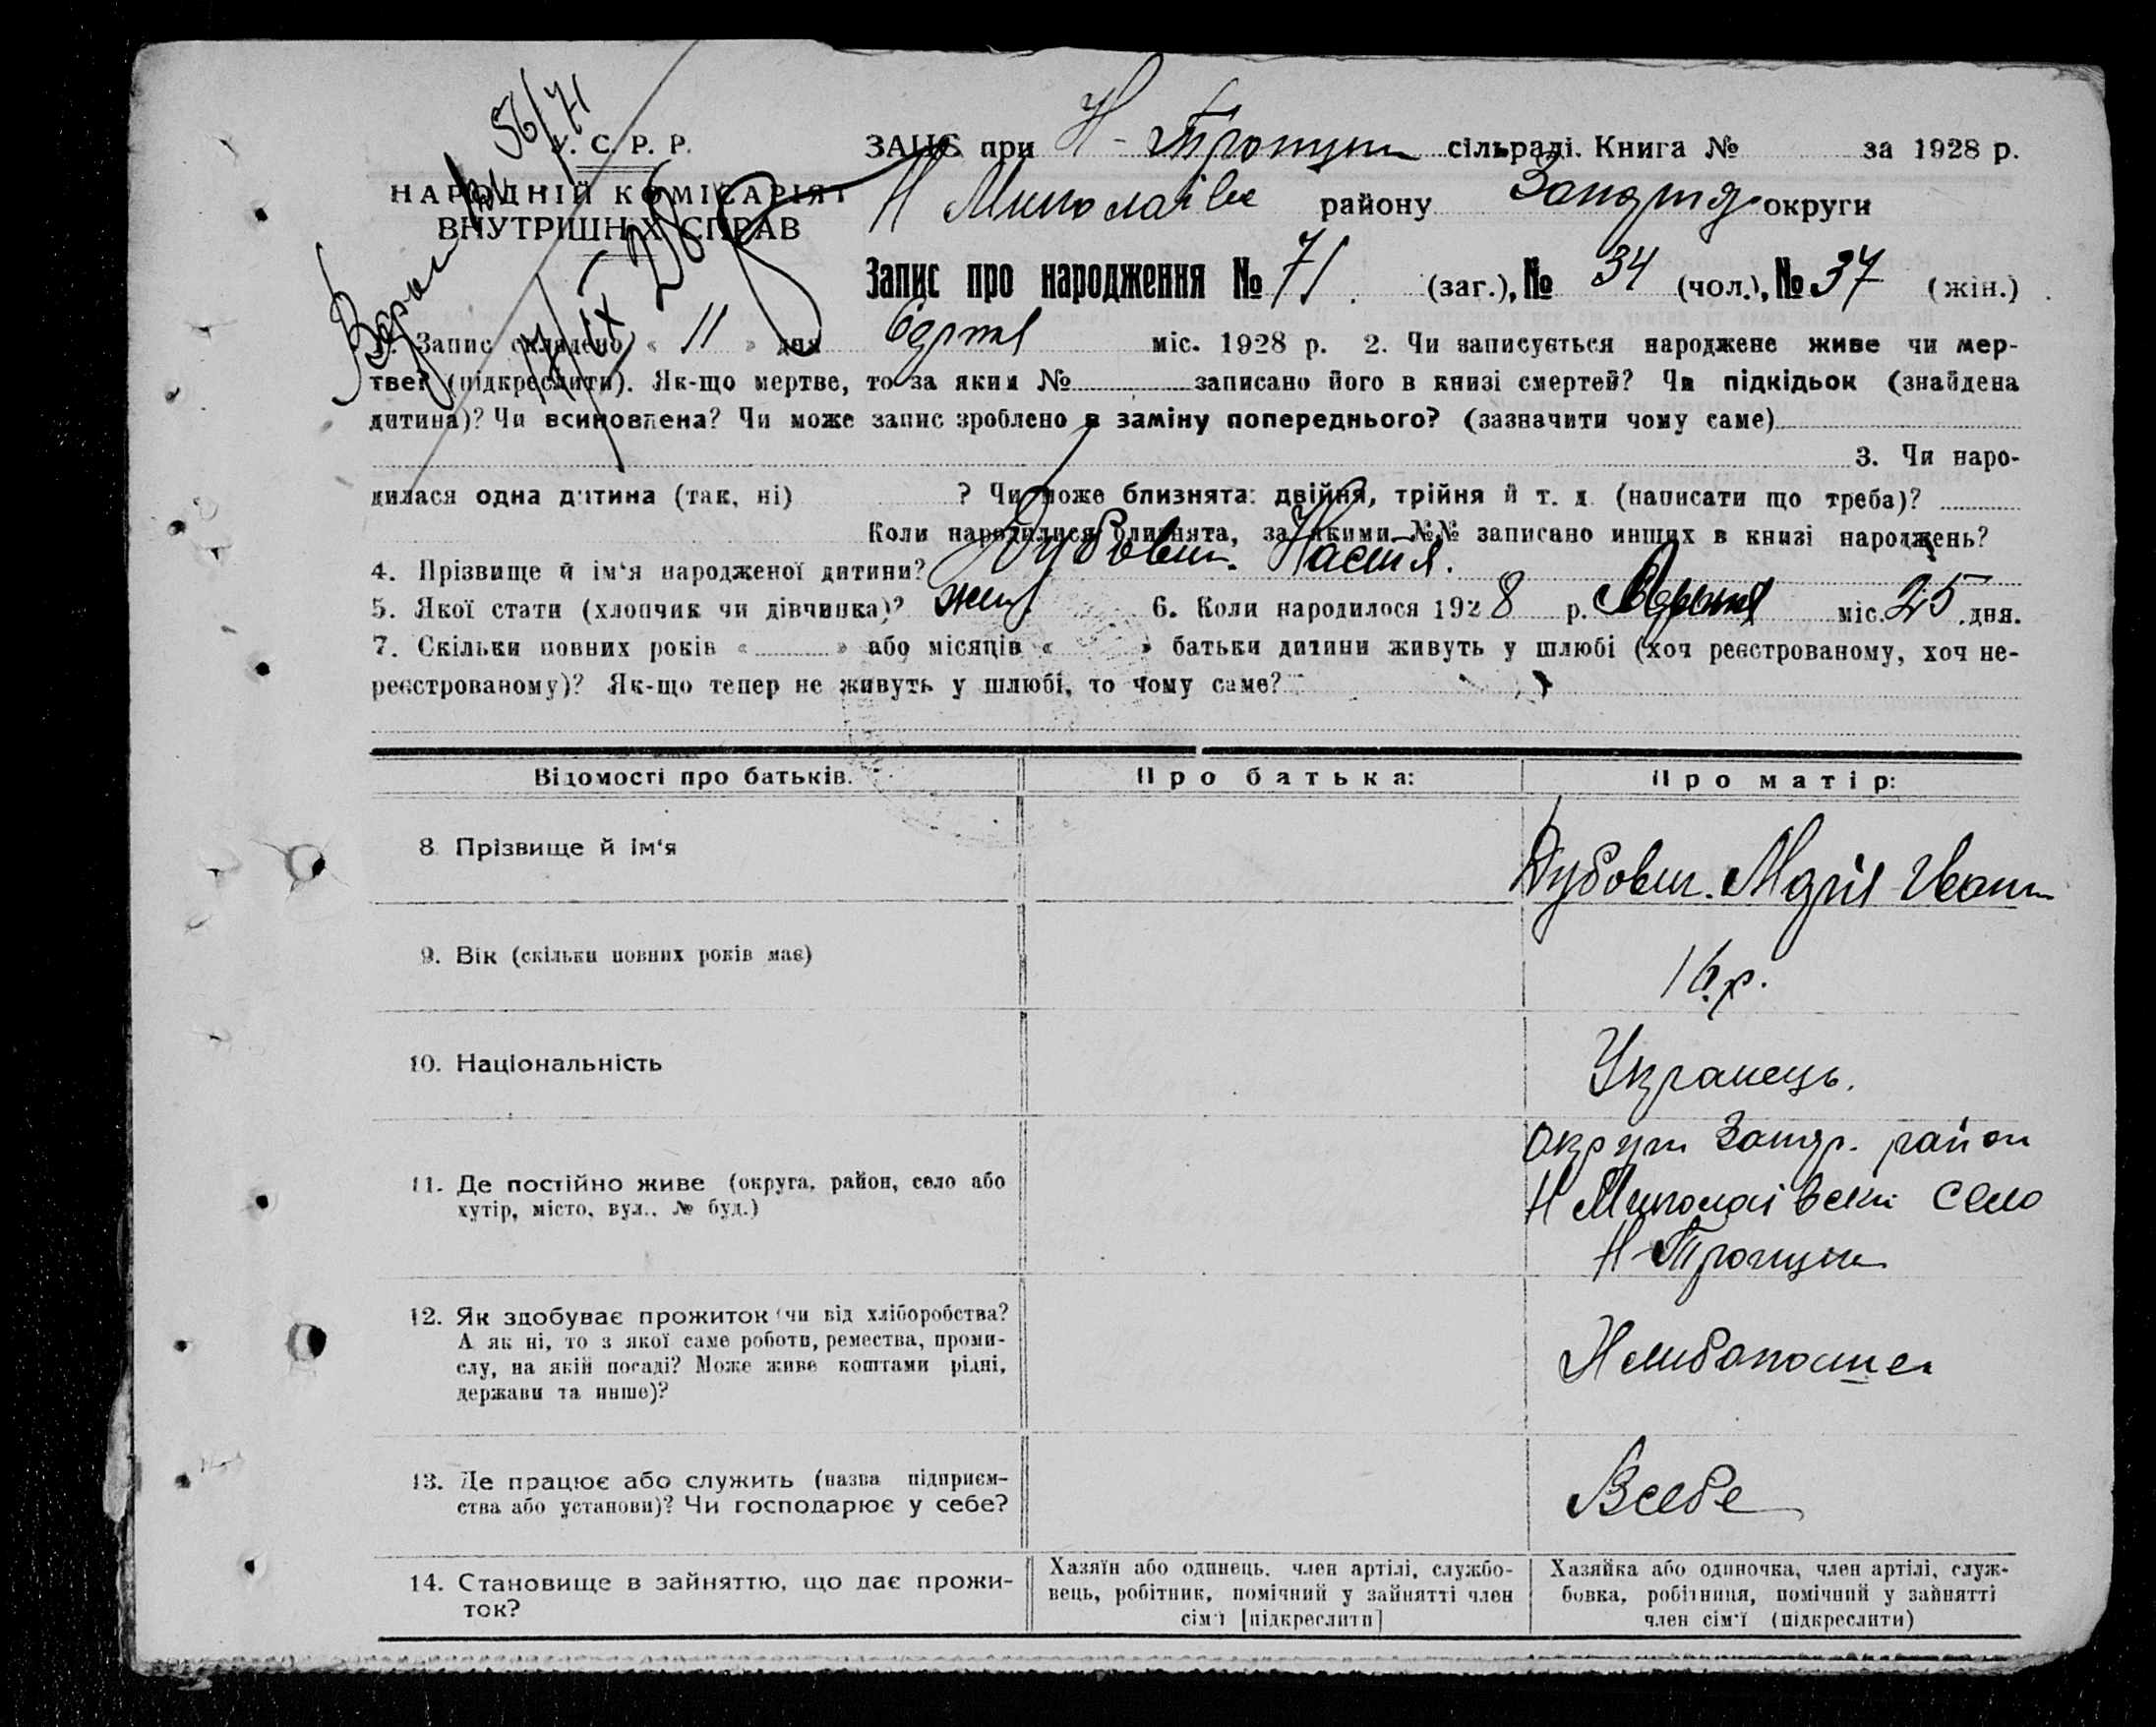 56/71
У. С. Р. Р.
НАРОДНІЙ КОМІСАРІЯТ
ВНУТРІШНІХ СПРАВ
ЗАГС при Н-Троицьк сільраді. Книга № за 1928 р.
Н Миколаївс району Запоріз округи
Запис про народження № 71. (заг.), № 34 (чол.), № 37 (жін.)
1. Запис складено « 11 » дня Серпня міс. 1928 р. 2. Чи записується народжене живе чи мер-
тве? (підкреслити). Як-що мертве, то за яким № записано його в книзі смертей? Чи підкідьок (знайдена
дитина)? Чи всиновлена? Чи може запис зроблено в заміну попереднього? (зазначити чому саме)
3. Чи наро-
дилася одна дитина (так, ні) ? Чи може близнята: двійня, трійня й т. д. (написати що треба)?
Коли народилися близнята, за якими №№ записано инших в книзі народжень?
4. Прізвище й ім‘я народженої дитини? Дубовик. Настя.
5. Якої стати (хлопчик чи дівчинка)? жін. 6. Коли народилося 1928 р. міс. 25 дня.
7. Скільки повних років « » або місяців « » батьки дитини живуть у шлюбі (хоч реєстрованому, хоч не-
реєстрованому)? Як-що тепер не живуть у шлюбі, то чому саме?
Відомості про батьків. Про батька: Про матір:
8. Прізвище й ім‘я Дубовик. Марія Іван
9. Вік (скільки повних років має) 16 р.
10. Національність Укранець.
11. Де постійно живе (округа, район, село або
хутір, місто, вул., № буд.) Округи Запор. район
Н Миколаівски село
Н-Троицьк
12. Як здобуває прожиток (чи від хліборобства?
А як ні, то з якої саме роботи, ремества, проми-
слу, на якій посаді? Може живе коштами рідні,
держави та инше)?
13. Де працює або служить (назва підприєм-
ства або установи)? Чи господарює у себе? Всебе
14. Становище в зайняттю, що дає прожи-
ток?
Хазяїн або одинець, член артілі, службо-
вець, робітник, помічний у зайнятті член
сім‘ї [підкреслити]
Хазяйка або одиночка, член артілі, служ-
бовка, робітниця, помічний у зайнятті
член сім‘ї (підкреслити)